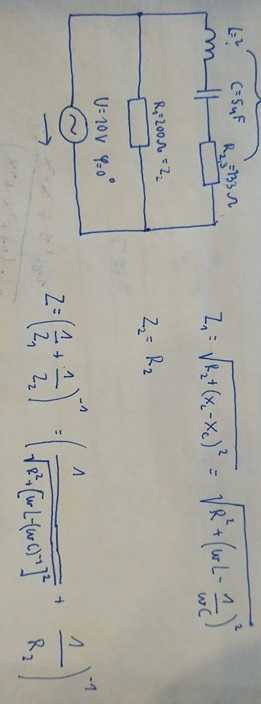 L=?
C=5μF
R₂,₃=133Ω
R₁=200Ω=Z₂
U=10V φ=0°
~
Z₁ = √(R₂+(X_L-X_C)²) = √(R²+(ωL-1/ωC)²)
Z₂ = R₂
Z=(1/Z₁+1/Z₂)⁻¹ = (1/√(R²+[ωL-(ωC)⁻¹]²) + 1/R₂)⁻¹